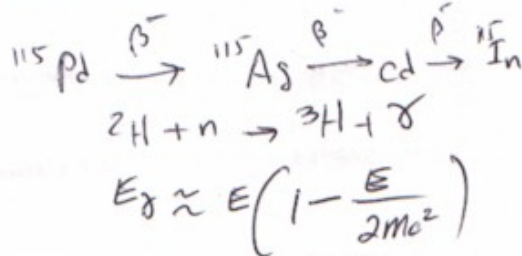 ¹¹⁵Pd β⁻→ ¹¹⁵Ag β⁻→ Cd β⁻→ ¹¹⁵In
²H + n → ³H + γ
Eγ ≈ E(1 - E/2Mc²)